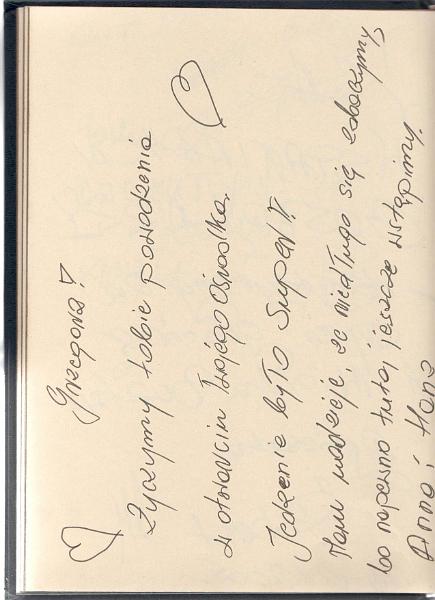 Grzegorz!
Życzymy tobie powodzenia
w otwarciu Twojego Ośrodka.
Jedzenie było super!!
Mam nadzieję, że niedługo się zobaczymy,
bo napewno tutaj jeszcze wstąpimy.
Anna i Hans